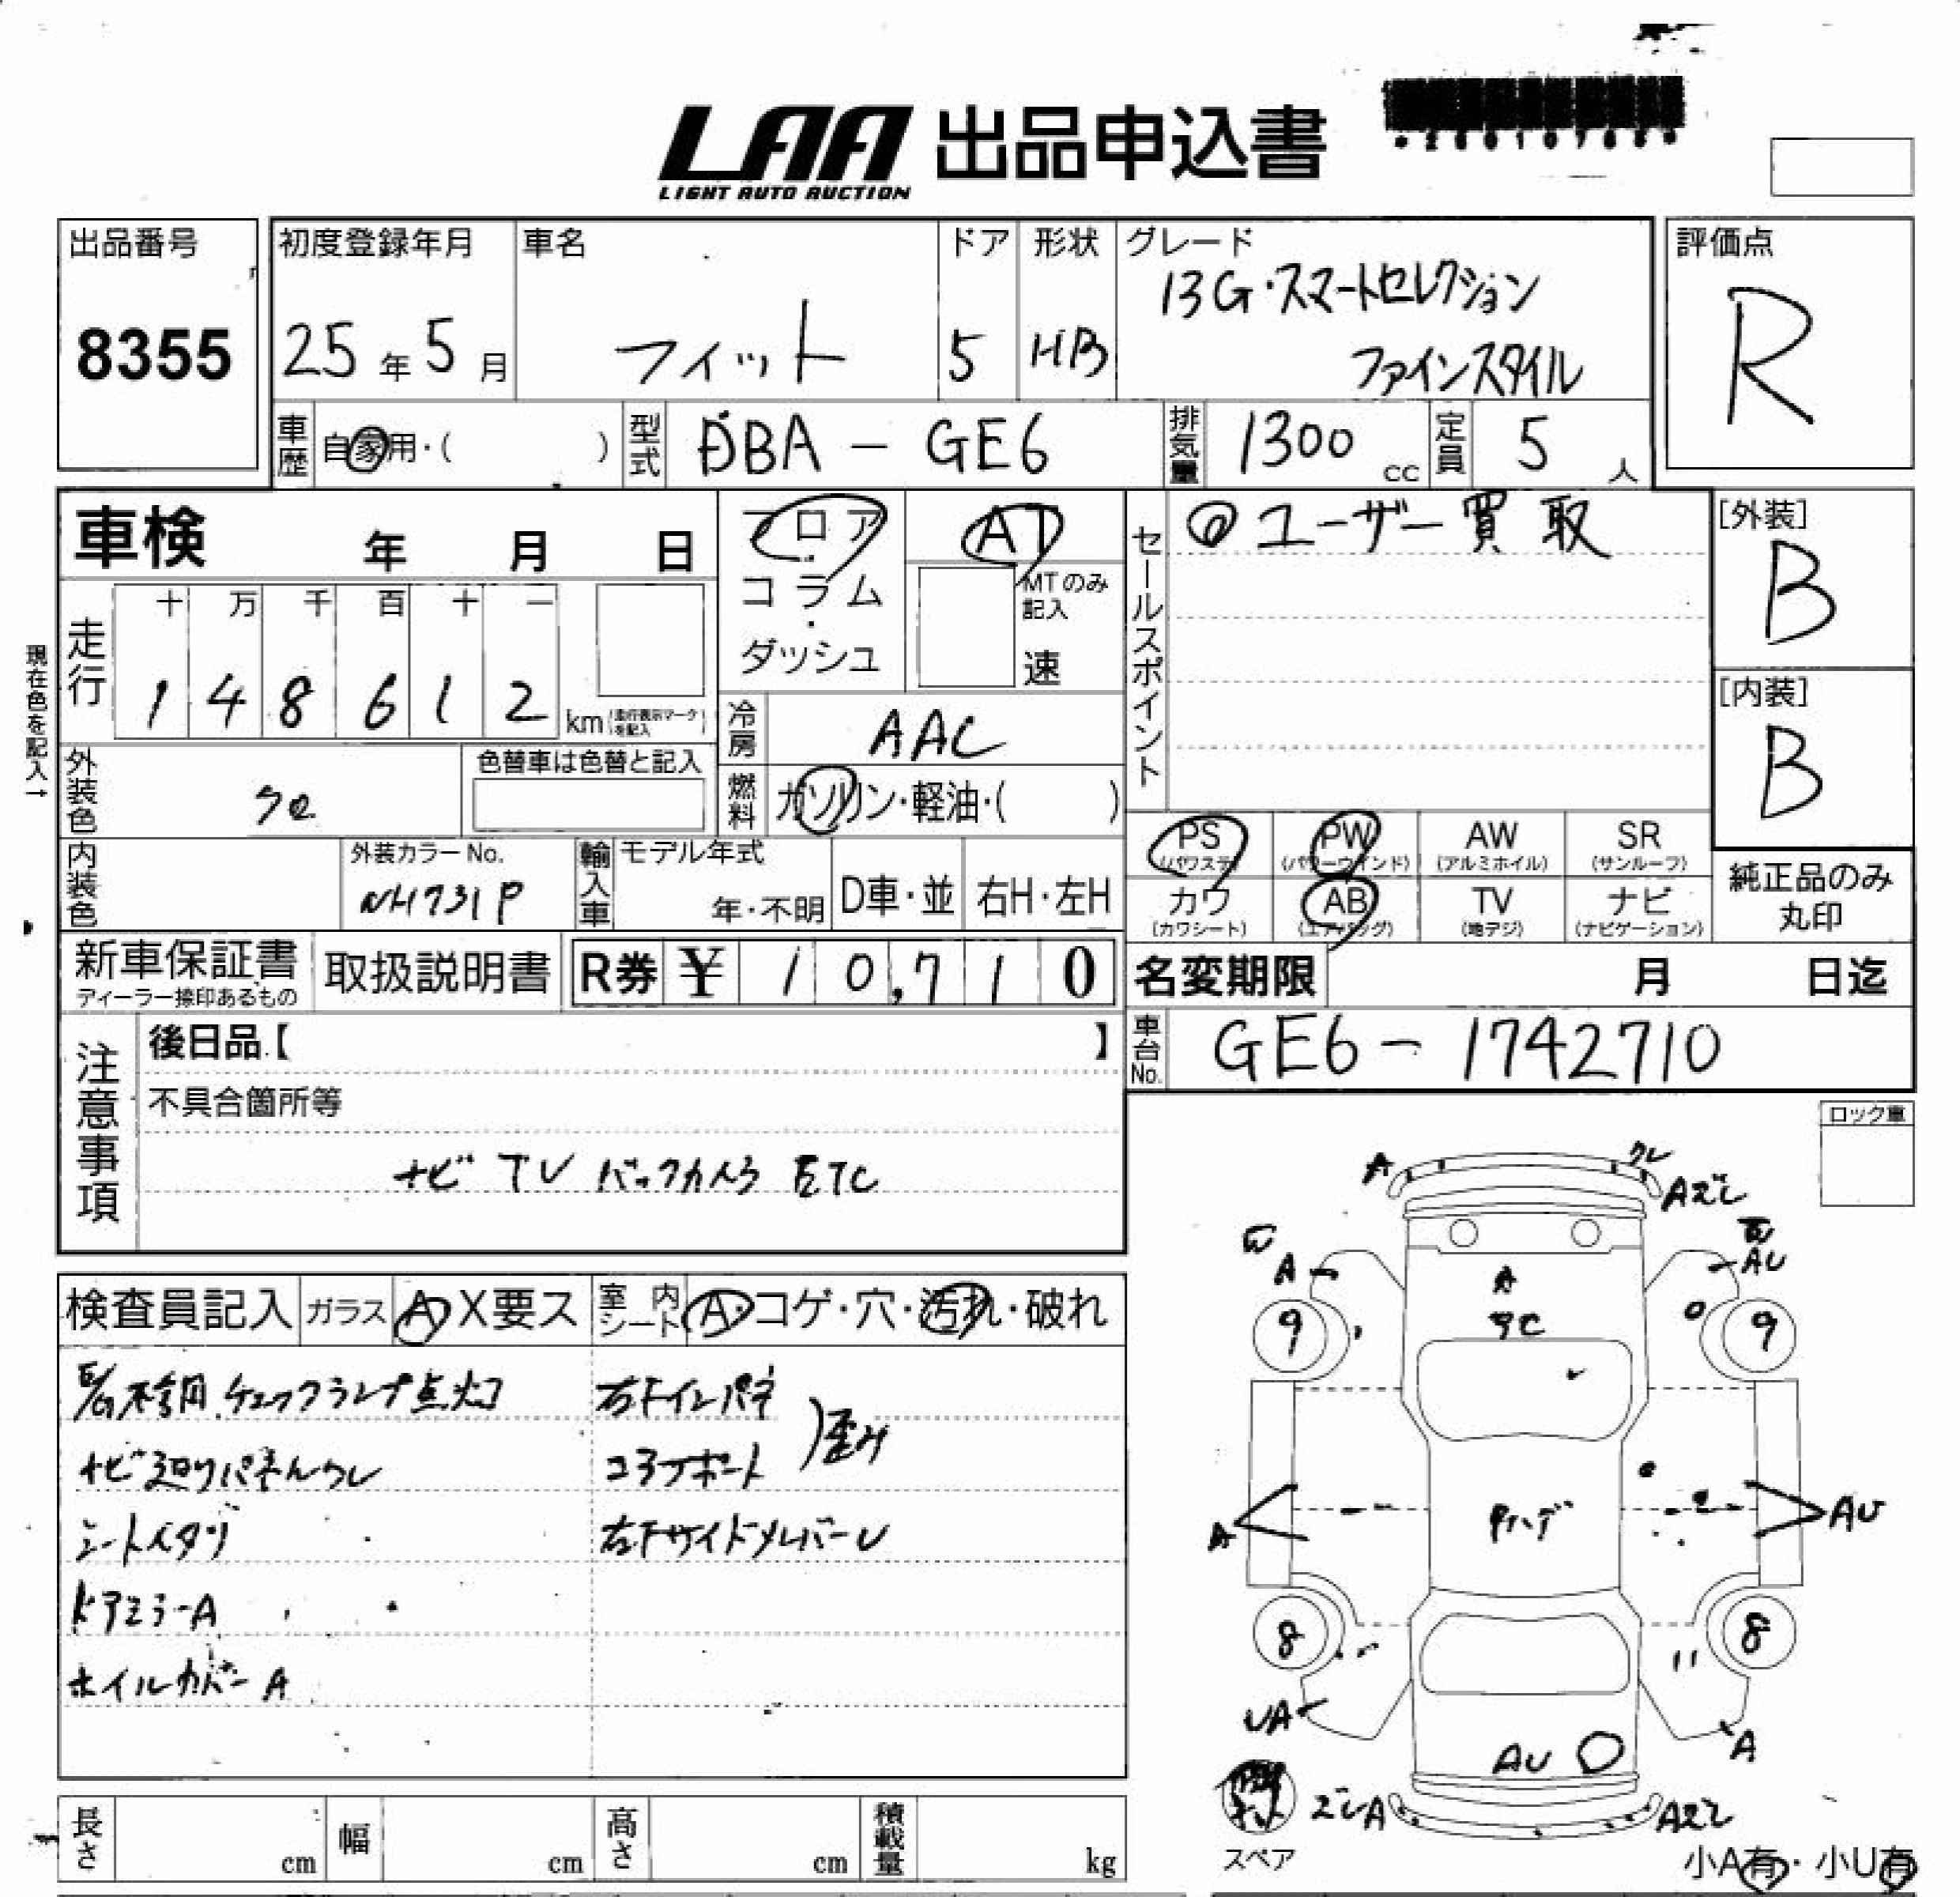 LAA 出品申込書
LIGHT AUTO AUCTION
出品番号
8355
初度登録年月
25年5月
車名
フィット
ドア
5
形状
HB
グレード
13G・スマートセレクション
ファインスタイル
評価点
R
車歴
自家用・( )
型式
DBA - GE6
排気量
1300 cc
定員
5人
車検 年 月 日
フロア・コラム・ダッシュ
AT
MTのみ記入
速
セールスポイント
◎ユーザー買取
[外装]
B
[内装]
B
現在色を記入→
走行
十 万 千 百 十 一
1 4 8 6 1 2 km
(走行表示マークを記入)
冷房
AAC
外装色
クロ
色替車は色替と記入
燃料
ガソリン・軽油・( )
内装色
外装カラーNo.
NH731P
輸入車
モデル年式
年・不明
D車・並
右H・左H
PS (パワステ)
PW (パワーウインド)
AW (アルミホイル)
SR (サンルーフ)
カワ (カワシート)
AB (エアバッグ)
TV (地デジ)
ナビ (ナビゲーション)
純正品のみ丸印
新車保証書
ディーラー捺印あるもの
取扱説明書
R券 ¥ 10,710
名変期限 月 日迄
車台No.
GE6-1742710
注意事項
後日品【 】
不具合箇所等
ナビ TV バックカメラ ETC
ロック車
検査員記入
ガラス A X要ス
室内シート A・コゲ・穴・汚れ・破れ
チェックランプ点灯
ナビ廻りパネルワレ
シートイタミ
ドアミラーA
ホイルカバーA
右Fインパネ
コアサポート
)歪み
右FサイドメンバーU
A
ワレ
Aズレ
A
AU
A
9
9
A
AU
8
8
UA
A
AU
ズレA
Aズレ
スペア
小A有・小U有
長さ cm
幅 cm
高さ cm
積載量 kg